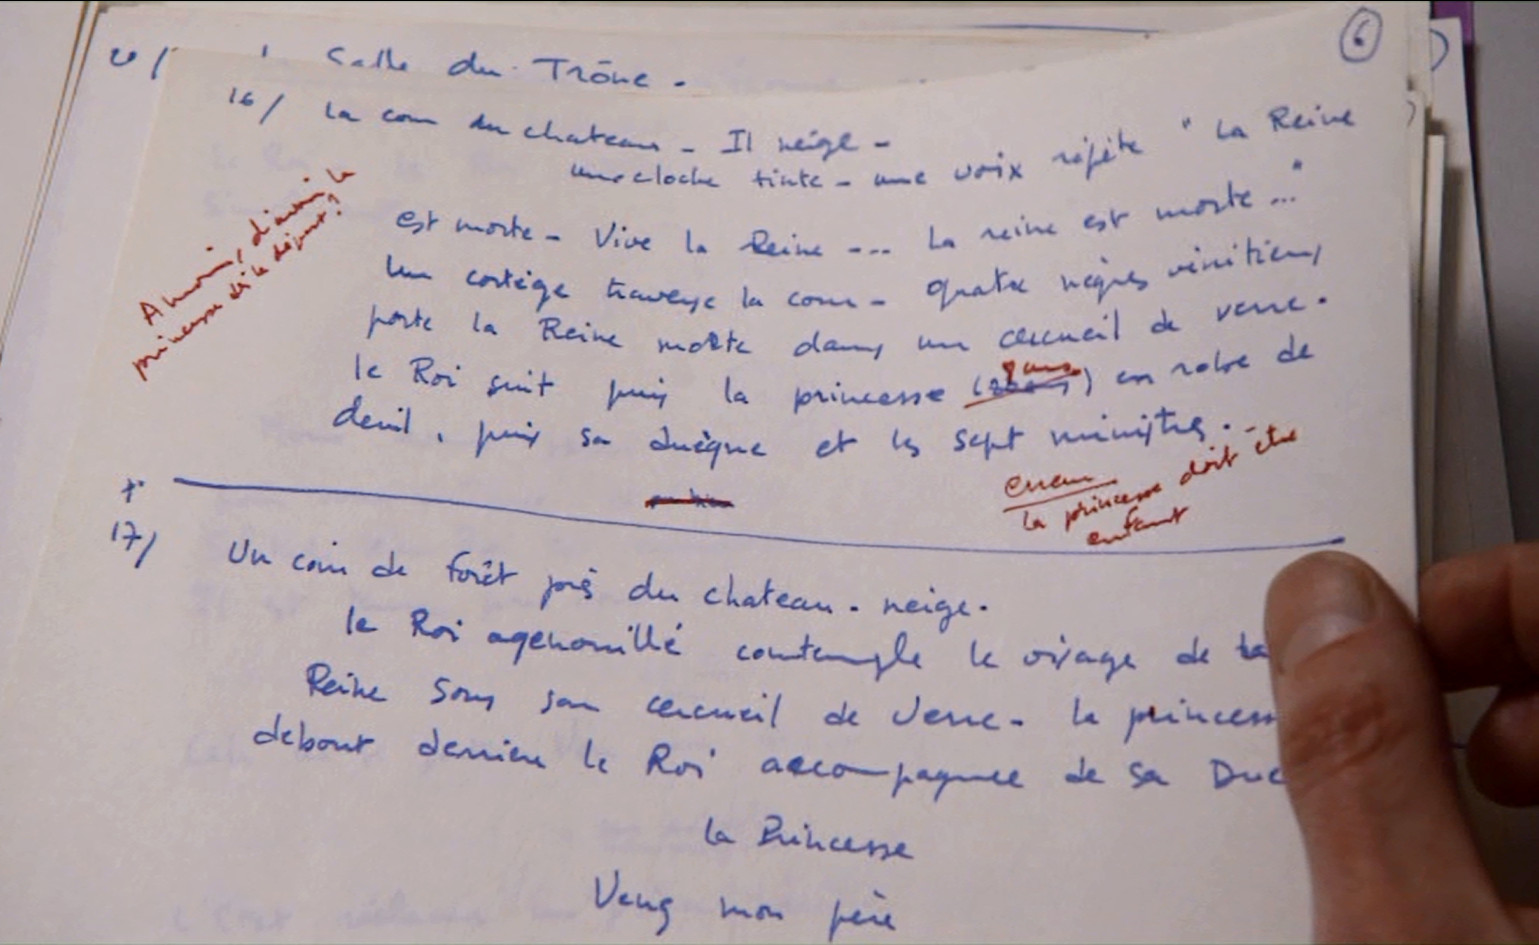 6
Salle du Trône.
16/ La cour du chateau - Il neige -
une cloche tinte - une voix répète " La Reine
est morte - Vive la Reine --- La reine est morte ..."
Un cortège traverse la cour - quatre nègres vénitiens
porte la Reine morte dans un cercueil de verre.
le Roi suit puis la princesse ( ) en robe de
deuil, puis sa duègne et les sept ministres.
erreur
la princesse doit être
enfant
17/
Un coin de forêt près du chateau. neige.
le Roi agenouillé contemple le visage de la
Reine sous son cercueil de verre. la princess
debout derrière le Roi accompagnée de sa Due
La Princesse
Venez mon père